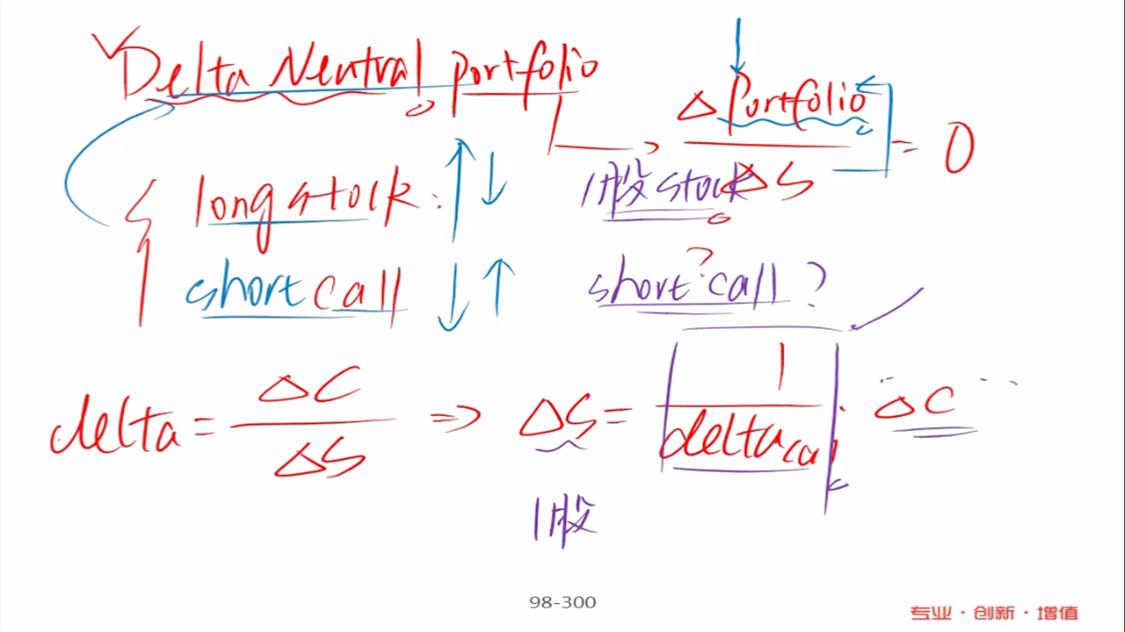 Delta Neutral portfolio
Δ Portfolio
= 0
1股 stock ΔS
long stock: ↑↓
short call ↓↑
short ? call ?
delta = ΔC / ΔS ⇒ ΔS = 1 / delta call · ΔC
1股
98-300
专业·创新·增值